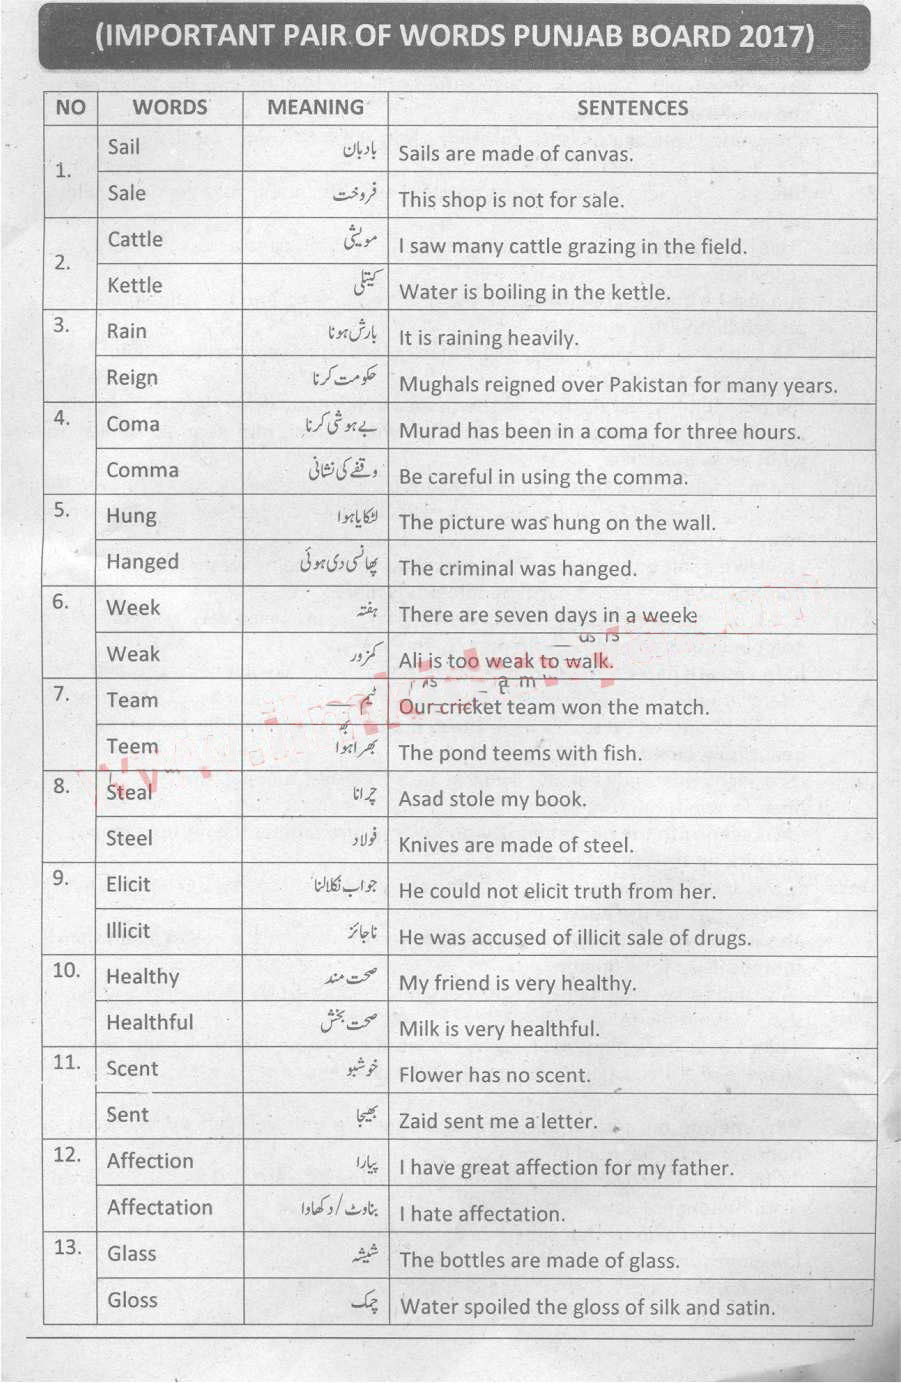 (IMPORTANT PAIR OF WORDS PUNJAB BOARD 2017)
NO WORDS MEANING SENTENCES
1. Sail بادبان Sails are made of canvas.
Sale فروخت This shop is not for sale.
2. Cattle مویشی I saw many cattle grazing in the field.
Kettle کیتلی Water is boiling in the kettle.
3. Rain بارش ہونا It is raining heavily.
Reign حکومت کرنا Mughals reigned over Pakistan for many years.
4. Coma بے ہوشی کرنا Murad has been in a coma for three hours.
Comma وقفے کی نشانی Be careful in using the comma.
5. Hung لٹکایا ہوا The picture was hung on the wall.
Hanged پھانسی دی ہوئی The criminal was hanged.
6. Week ہفتہ There are seven days in a week.
Weak کمزور Ali is too weak to walk.
7. Team ٹیم Our cricket team won the match.
Teem بھرا ہوا The pond teems with fish.
8. Steal چرانا Asad stole my book.
Steel فولاد Knives are made of steel.
9. Elicit جواب نکلالنا He could not elicit truth from her.
Illicit ناجائز He was accused of illicit sale of drugs.
10. Healthy صحت مند My friend is very healthy.
Healthful صحت بخش Milk is very healthful.
11. Scent خوشبو Flower has no scent.
Sent بھیجا Zaid sent me a letter.
12. Affection پیارا I have great affection for my father.
Affectation بناوٹ/دکھاوا I hate affectation.
13. Glass شیشہ The bottles are made of glass.
Gloss چمک Water spoiled the gloss of silk and satin.